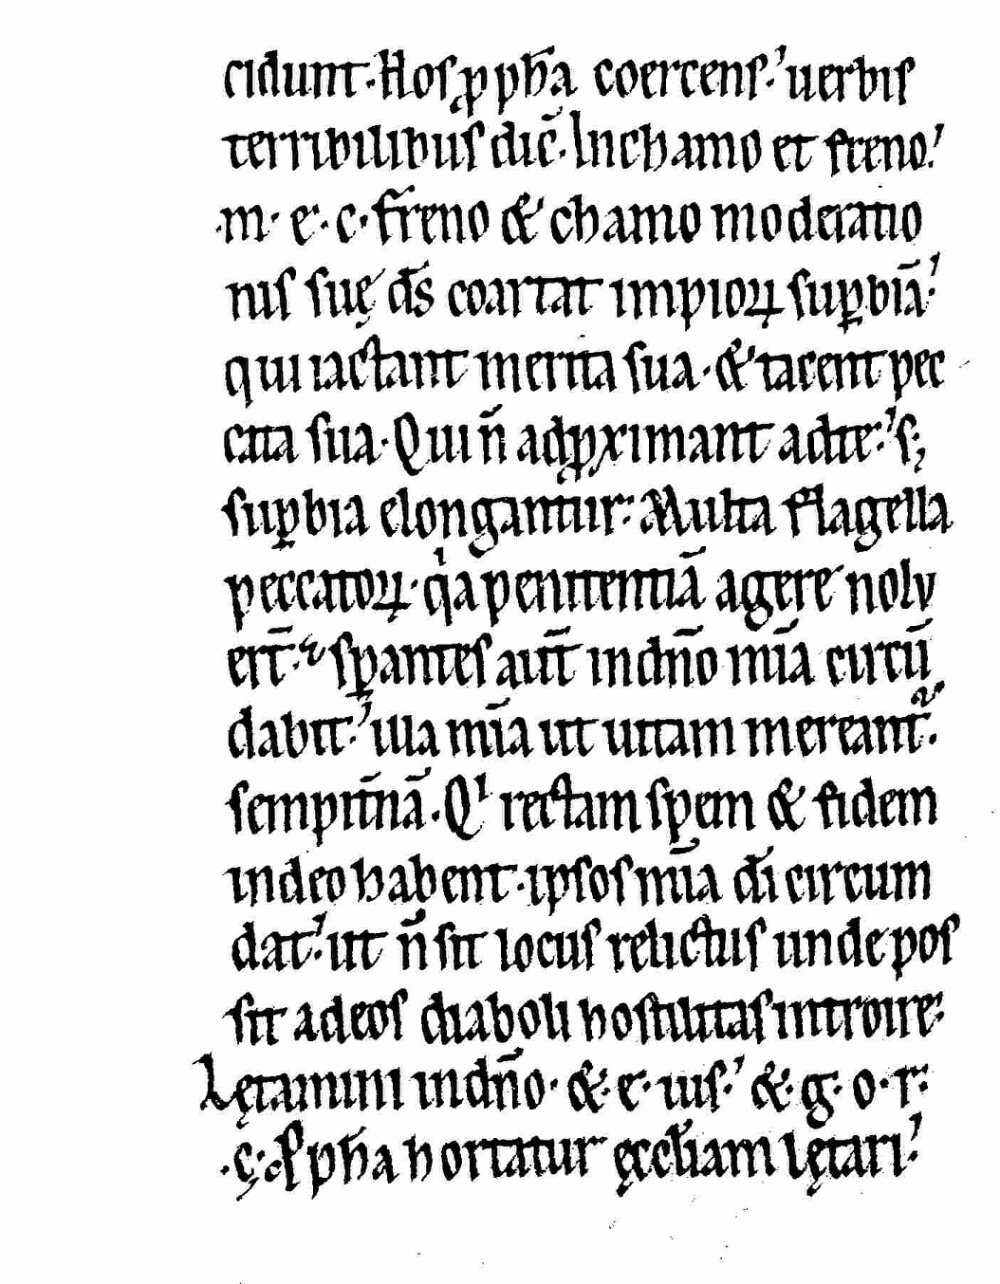 cidunt. Hos ꝓph̄a coercens. uerbis
terribilibus dic̄. In chamo et freno.
.m. e. c. fr̄eno & chamo moderatio
nis suę d̄s coartat impioꝝ suꝑbiā.
qui iactant merita sua. & tacent pec
cata sua. Qui n̄ adꝓximant ad te. s;
suꝑbia elongantur. Multa flagella
peccatoꝝ. qͥa penitentiā agere nolu
er̄t. Sꝑantes aut̄ in dn̄o mīa circū
dabit. illa mīa ut uitam mereant᷑.
sempit̄nā. Qͥ rectam spem & fidem
in deo habent. ipsos mīa dī circum
dat. ut n̄ sit locus relictus unde pos
sit ad eos diaboli hostilitas introire.
Lętamini in dn̄o. &. e. ius. &. g. o. r.
.ę. Ꝓph̄a hortatur ęccl̄iam lętari.